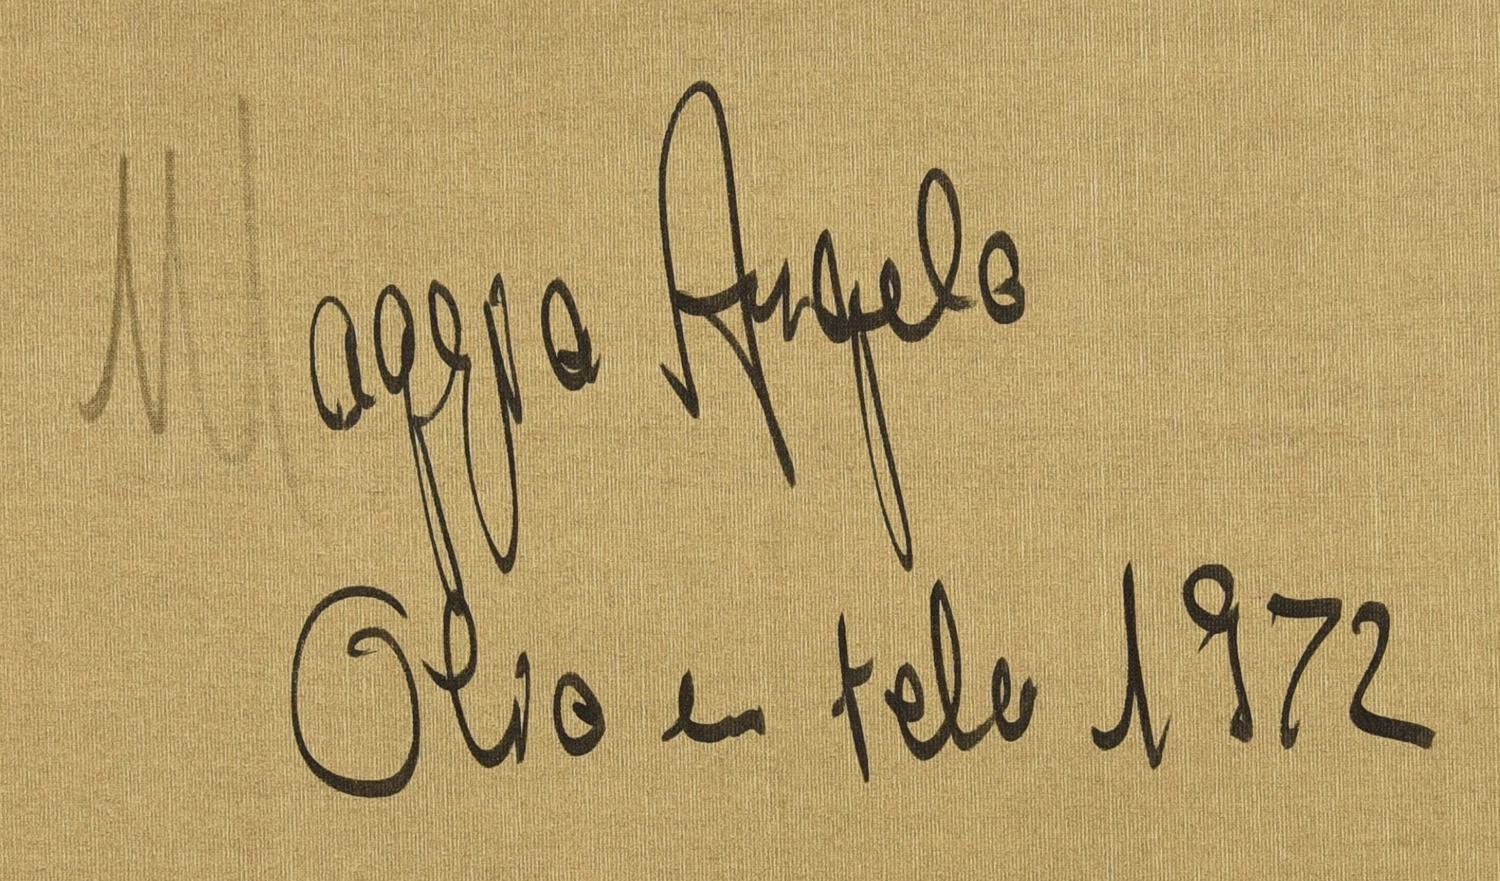 Maggio Angelo
Olio en tela 1972